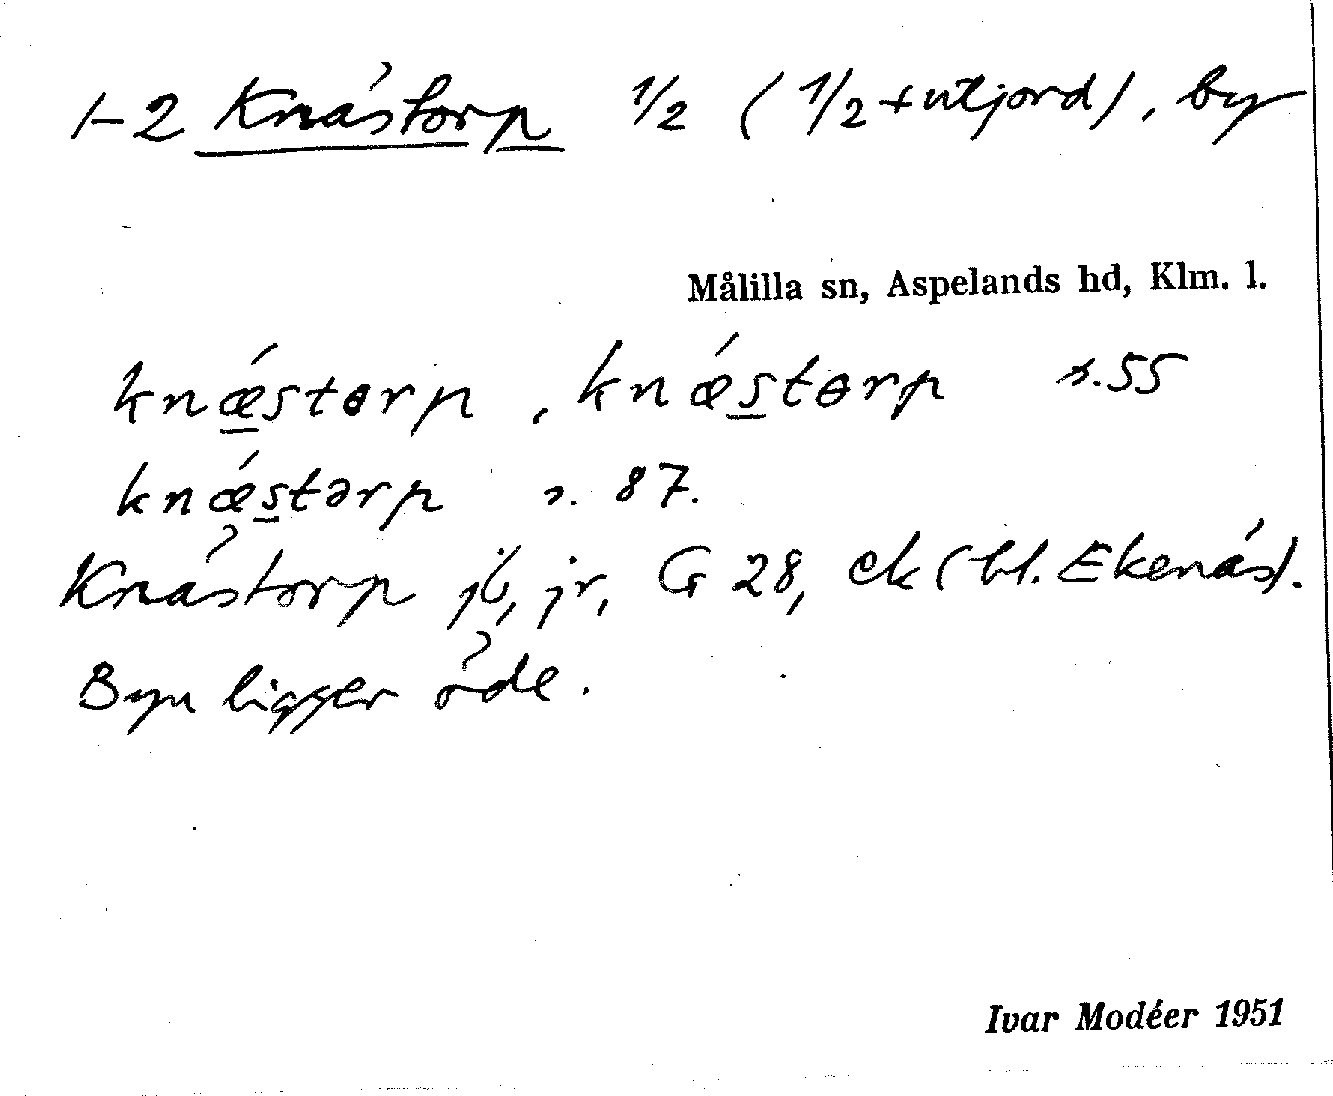 1-2 Knästorp 1/2 (1/2 + utjord), by
Målilla sn, Aspelands hd, Klm. l.
knǽstɵrp, knǽstɵrp s. 55
knǽstərp s. 87.
Knästorp jb, jr, G 28, ek (bl. Ekenäs).
Byn ligger öde.
Ivar Modéer 1951